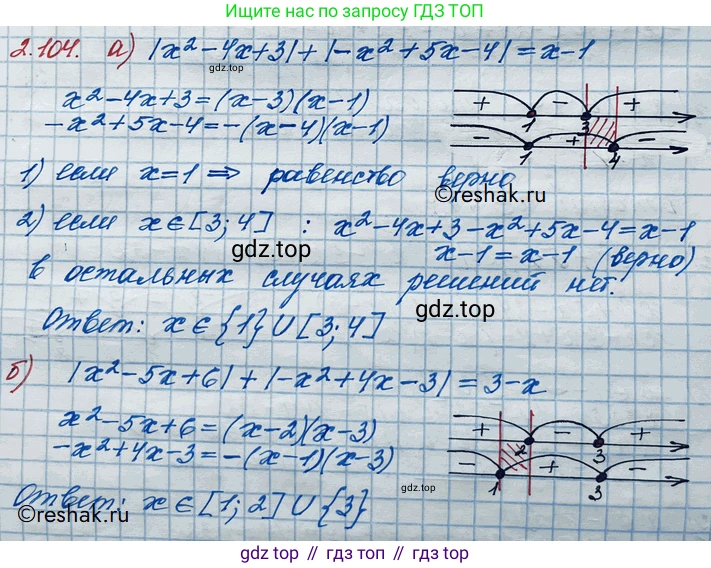 Ещё больше по запросу ГДЗ ТОП
2.104. а) |x² - 4x + 3| + |-x² + 5x - 4| = x - 1
gdz.top
x² - 4x + 3 = (x - 3)(x - 1)
-x² + 5x - 4 = -(x - 4)(x - 1)
+ - +
1 3
- + -
1 4
1) если x = 1 ⇒ равенство верно
©reshak.ru
2) если x ∈ [3; 4] : x² - 4x + 3 - x² + 5x - 4 = x - 1
gdz.top
x - 1 = x - 1 (верно)
в остальных случаях решений нет.
gdz.top
Ответ: x ∈ {1} ∪ [3; 4]
б) |x² - 5x + 6| + |-x² + 4x - 3| = 3 - x
x² - 5x + 6 = (x - 2)(x - 3)
-x² + 4x - 3 = -(x - 1)(x - 3)
+ - +
2 3
- + -
1 3
gdz.top
Ответ: x ∈ [1; 2] ∪ {3}
©reshak.ru
gdz.top // гдз топ // гдз.топ